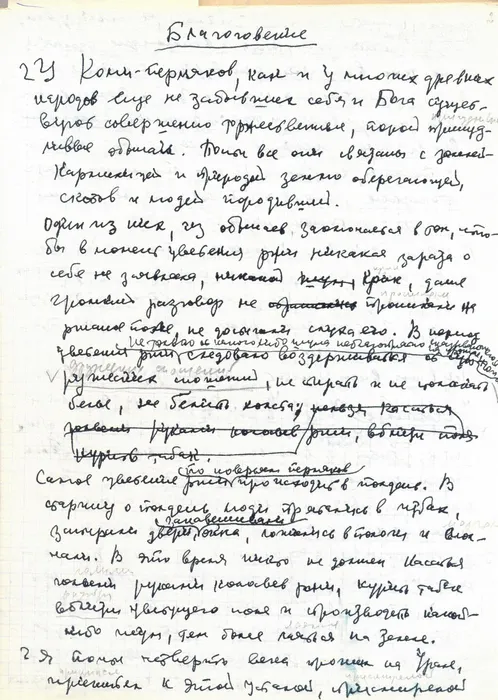 Благоговение
2 У Коми-пермяков, как и у многих древних
народов еще не забывших себя и Бога сущест-
вуют совершенно торжественные, порой причуд-
ливые обычаи. Почти все они связаны с землей-
кормилицей и природой землю оберегающей,
скотов и людей породившей.
Один из них, из обычаев заключается в том, что-
бы в момент цветения ржи никакая зараза о
себе не заявляла, никакой шум, крик, даже
громкий разговор не проникали на
ржаное поле, не достигали слуха его. В период
цветения ржи следовало воздерживаться от
не стирать и не полоскать
белье, не белить холсты, нельзя касаться
голыми руками колосьев ржи, вблизи поля
курить табак.
Самое цветение ржи, по поверью пермяков происходит в полдень. В
старину о полдень люди прятались в избах,
запирали двери, занавешивали окна, ложились в пологи и мол-
чали. В это время никто не должен касаться
голыми руками колосьев ржи, курить табак
вблизи цветущего поля и производить какой-
нибо шум, тем более ляться на земле.
2 Я почти четверть века прожил на Урале,
к этой устной,